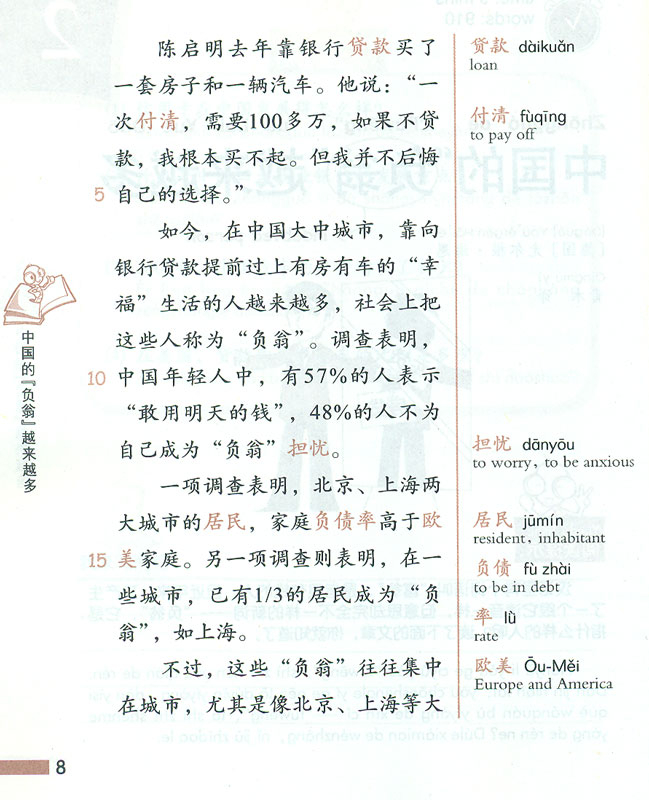 陈启明去年靠银行贷款买了
一套房子和一辆汽车。他说：“一
次付清，需要100多万，如果不贷
款，我根本买不起。但我并不后悔
5 自己的选择。”
如今，在中国大中城市，靠向
银行贷款提前过上有房有车的“幸
福”生活的人越来越多，社会上把
这些人称为“负翁”。调查表明，
10 中国年轻人中，有57%的人表示
“敢用明天的钱”，48%的人不为
自己成为“负翁”担忧。
一项调查表明，北京、上海两
大城市的居民，家庭负债率高于欧
15 美家庭。另一项调查则表明，在一
些城市，已有1/3的居民成为“负
翁”，如上海。
不过，这些“负翁”往往集中
在城市，尤其是像北京、上海等大
贷款 dàikuǎn
loan
付清 fùqīng
to pay off
担忧 dānyōu
to worry, to be anxious
居民 jūmín
resident, inhabitant
负债 fù zhài
to be in debt
率 lǜ
rate
欧美 Ōu-Měi
Europe and America
中国的『负翁』越来越多
8